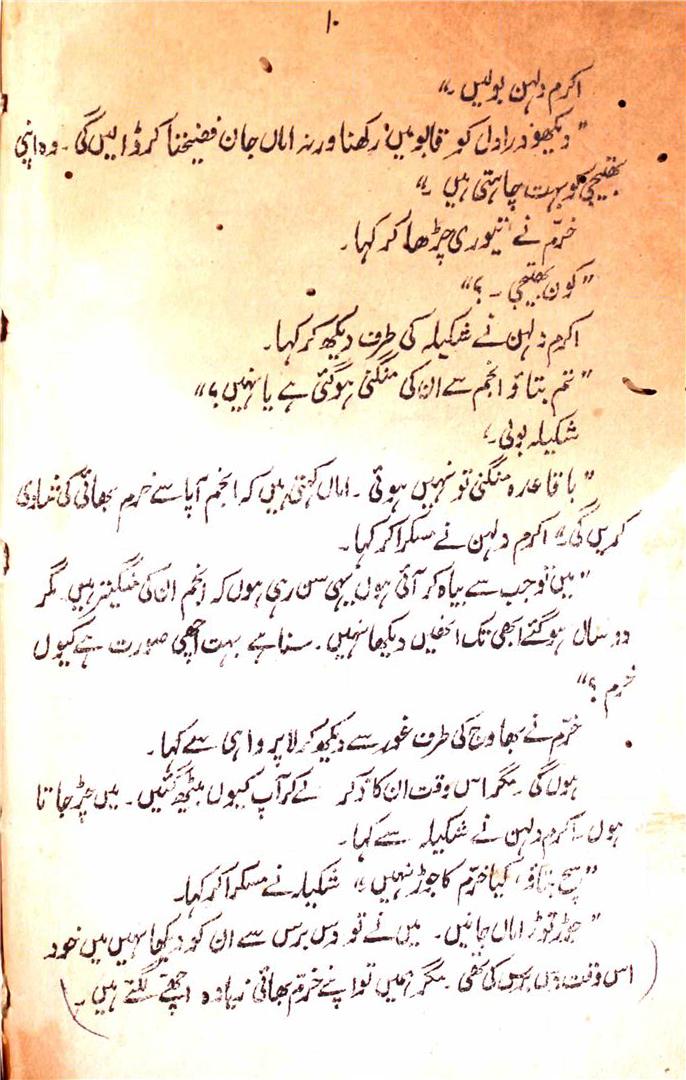 ۱۰
اکرم دلہن بولیں ۔"
"دیکھو ذرا دل کو قابو میں رکھنا ورنہ اماں جان فضیحتا کر ڈالیں گی ۔ وہ اپنی
بھتیجی کو بہت چاہتی ہیں ۔"
خرّم نے تیوری چڑھا کر کہا۔
"کون بھتیجی ۔ ؟"
اکرم دلہن نے شکیلہ کی طرف دیکھ کر کہا۔
"تم بتاؤ انجم سے ان کی منگنی ہو گئی ہے یا نہیں ؟"
شکیلہ بولی۔
"باقاعدہ منگنی تو نہیں ہوئی ۔ اماں کہتی ہیں کہ انجم آپا سے خرم بھائی کی شادی
کریں گی۔" اکرم دلہن نے مسکرا کر کہا۔
"میں تو جب سے بیاہ کر آئی ہوں یہی سن رہی ہوں کہ انجم ان کی منگیتر ہیں۔ مگر
دو سال ہو گئے ابھی تک انھیں دیکھا نہیں ۔ سنا ہے بہت اچھی صورت ہے کیوں
خرم ؟"
خرّم نے بھاوج کی طرف غور سے دیکھ کر لاپرواہی سے کہا۔
ہوں گی ۔ مگر اس وقت ان کا ذکر لے کر آپ کیوں بیٹھ گئیں ۔ میں چڑ جاتا
ہوں ۔ اکرم دلہن نے شکیلہ سے کہا۔
"سچ بتاؤ، کیا خرّم کا جوڑ نہیں" شکیلہ نے مسکرا کر کہا۔
"جوڑ توڑ اماں جانیں ۔ میں نے تو دس برس سے ان کو دیکھا نہیں میں خود
اس وقت دس برس کی تھی ۔ مگر ہمیں تو اپنے خرّم بھائی زیادہ اچھے لگتے ہیں ۔